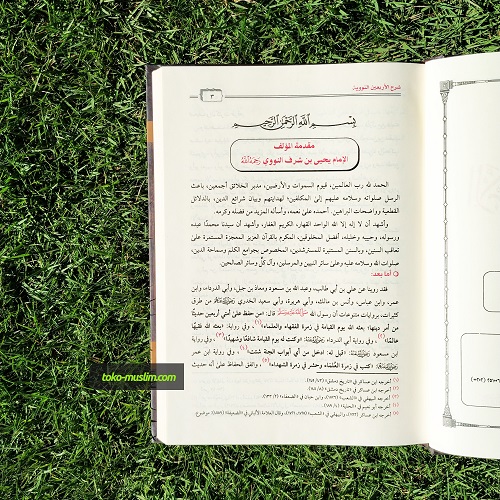 شرح الأربعين النووية
٣
بسم الله الرحمن الرحيم
مقدمة المؤلف
الإمام يحيى بن شرف النووي رحمه الله
الحمد لله رب العالمين، قيوم السموات والأرضين، مدبر الخلائق أجمعين، باعث
الرسل صلواته وسلامه عليهم إلى المكلفين؛ لهدايتهم وبيان شرائع الدين، بالدلائل
القطعية وواضحات البراهين. أحمده على نعمه، وأسأله المزيد من فضله وكرمه.
وأشهد أن لا إله إلا الله الواحد القهار، الكريم الغفار، وأشهد أن سيدنا محمدًا عبده
ورسوله، وحبيبه وخليله، أفضل المخلوقين، المكرم بالقرآن العزيز المعجزة المستمرة على
تعاقب السنين، وبالسنن المستنيرة للمسترشدين، المخصوص بجوامع الكلم وسماحة الدين،
صلوات الله وسلامه عليه وعلى سائر النبيين والمرسلين، وآل كلٍّ وسائر الصالحين.
أما بعد:
فقد روينا عن علي بن أبي طالب، وعبد الله بن مسعود ومعاذ بن جبل، وأبي الدرداء، وابن
عمر، وابن عباس، وأنس بن مالك، وأبي هريرة، وأبي سعيد الخدري رضي الله عنهم من طرق
كثيرات، بروايات متنوعات أن رسول الله صلى الله عليه وسلم قال: «من حفظ على أمتي أربعين حديثًا
من أمر دينها؛ بعثه الله يوم القيامة في زمرة الفقهاء والعلماء» (١)، وفي رواية: «بعثه الله فقيهًا
عالمًا» (٢)، وفي رواية أبي الدرداء: «وكنت له يوم القيامة شافعًا وشهيدًا» (٣)، وفي رواية ابن
مسعود: «قيل له: ادخل من أي أبواب الجنة شئت» (٤)، وفي رواية ابن عمر
«كتب في زمرة العلماء وحشر في زمرة الشهداء» (٥). واتفق الحفاظ على أنه حديث
(١) أخرجه ابن عساكر في «تاريخ دمشق»
(٢) أخرجه ابن عساكر في «تاريخ دمشق»
(٣) أخرجه البيهقي في «الشعب»، وابن حبان في «الضعفاء»
(٤) أخرجه أبو نعيم في «الحلية»
(٥) أخرجه ابن عساكر، والبيهقي في «الشعب»، وقال العلامة الألباني في «الضعيفة»: موضوع
toko-muslim.com